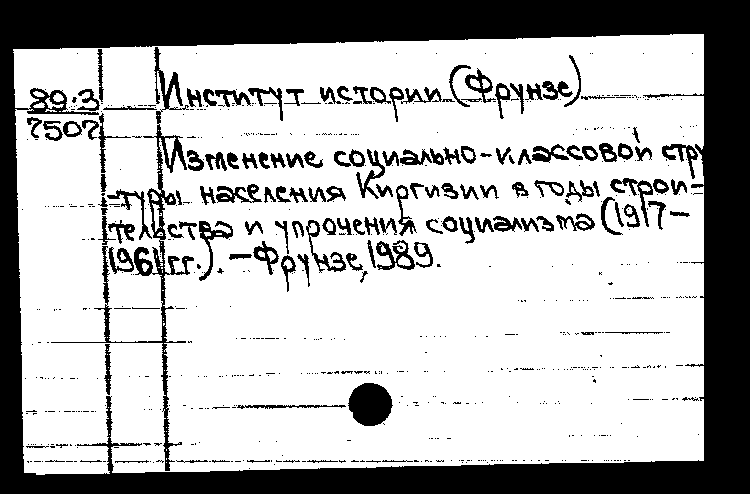 89-3
7507
Институт истории (Фрунзе)
Изменение социально-классовой стру
-туры населения Киргизии в годы строи-
тельства и упрочения социализма (1917-
1961 гг.). - Фрунзе, 1989.